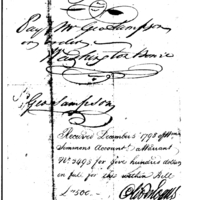 Pay Mr Geo Sampson
or order
Washington Bowie
Geo Sampson
Received December 1798 of
Simmons Accountt. a Warrant
No. 3498 for five hundred dollars
in full for this within Bill
500.